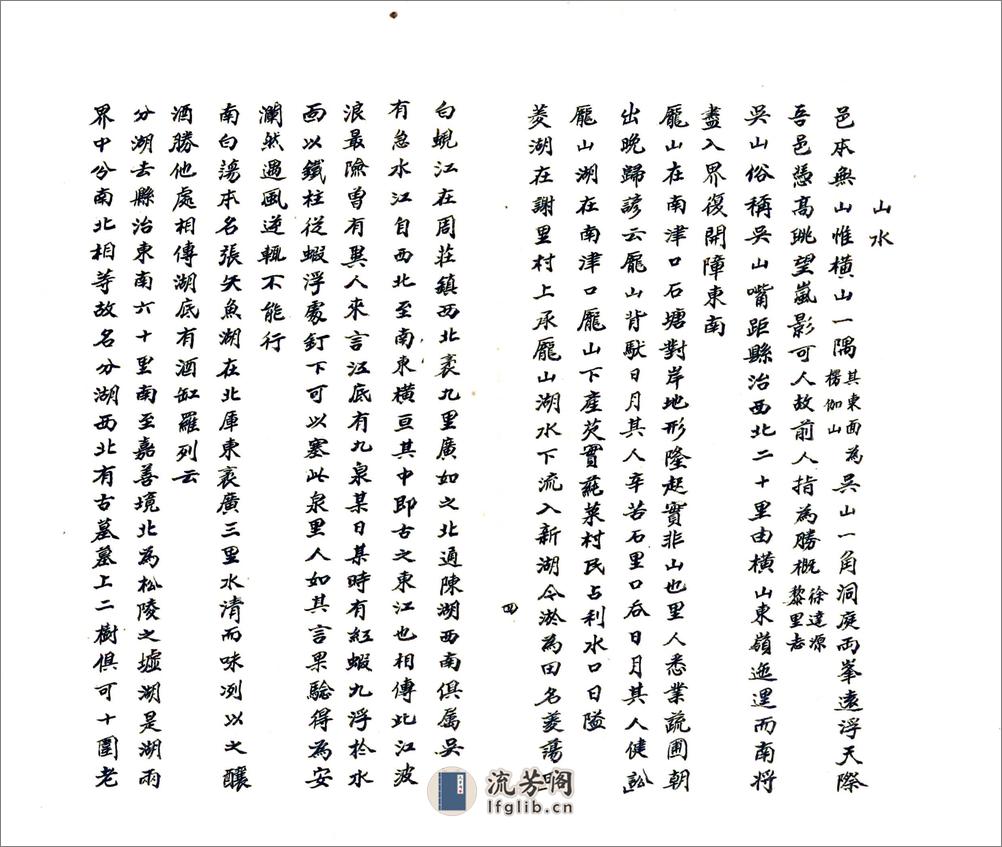 山水
邑本無山惟橫山一隅其東面為楞伽山吳山一角洞庭兩峯遠浮天際
吾邑憑高眺望嵐影可人故前人指為勝概徐達源黎里志
吳山俗稱吳山嘴距縣治西北二十里由橫山東嶺迤邐而南將
盡入界復開障東南
龐山在南津口石塘對岸地形隆起實非山也里人悉業蔬圃朝
出晚歸諺云龐山背馱日月其人辛苦石里口吞日月其人健訟
龐山湖在南津口龐山下產芡實蓴菜村民占利水口日隘
菱湖在謝里村上承龐山湖水下流入新湖今淤為田名菱蕩
四
白蜆江在周莊鎮西北袤九里廣如之北通陳湖西南俱屬吳
有急水江自西北至南東橫亘其中即古之東江也相傳此江波
浪最險曾有異人來言江底有九泉某日某時有紅蝦九浮於水
面以鐵柱從蝦浮處釘下可以塞此泉里人如其言果驗得為安
瀾然遇風逆輒不能行
南白蕩本名張矢魚湖在北庫東袤廣三里水清而味冽以之釀
酒勝他處相傳湖底有酒缸羅列云
分湖去縣治東南六十里南至嘉善境北為松陵之墟湖是湖兩
界中分南北相等故名分湖西北有古墓墓上二樹俱可十圍老
流芳阁
lfglib.cn